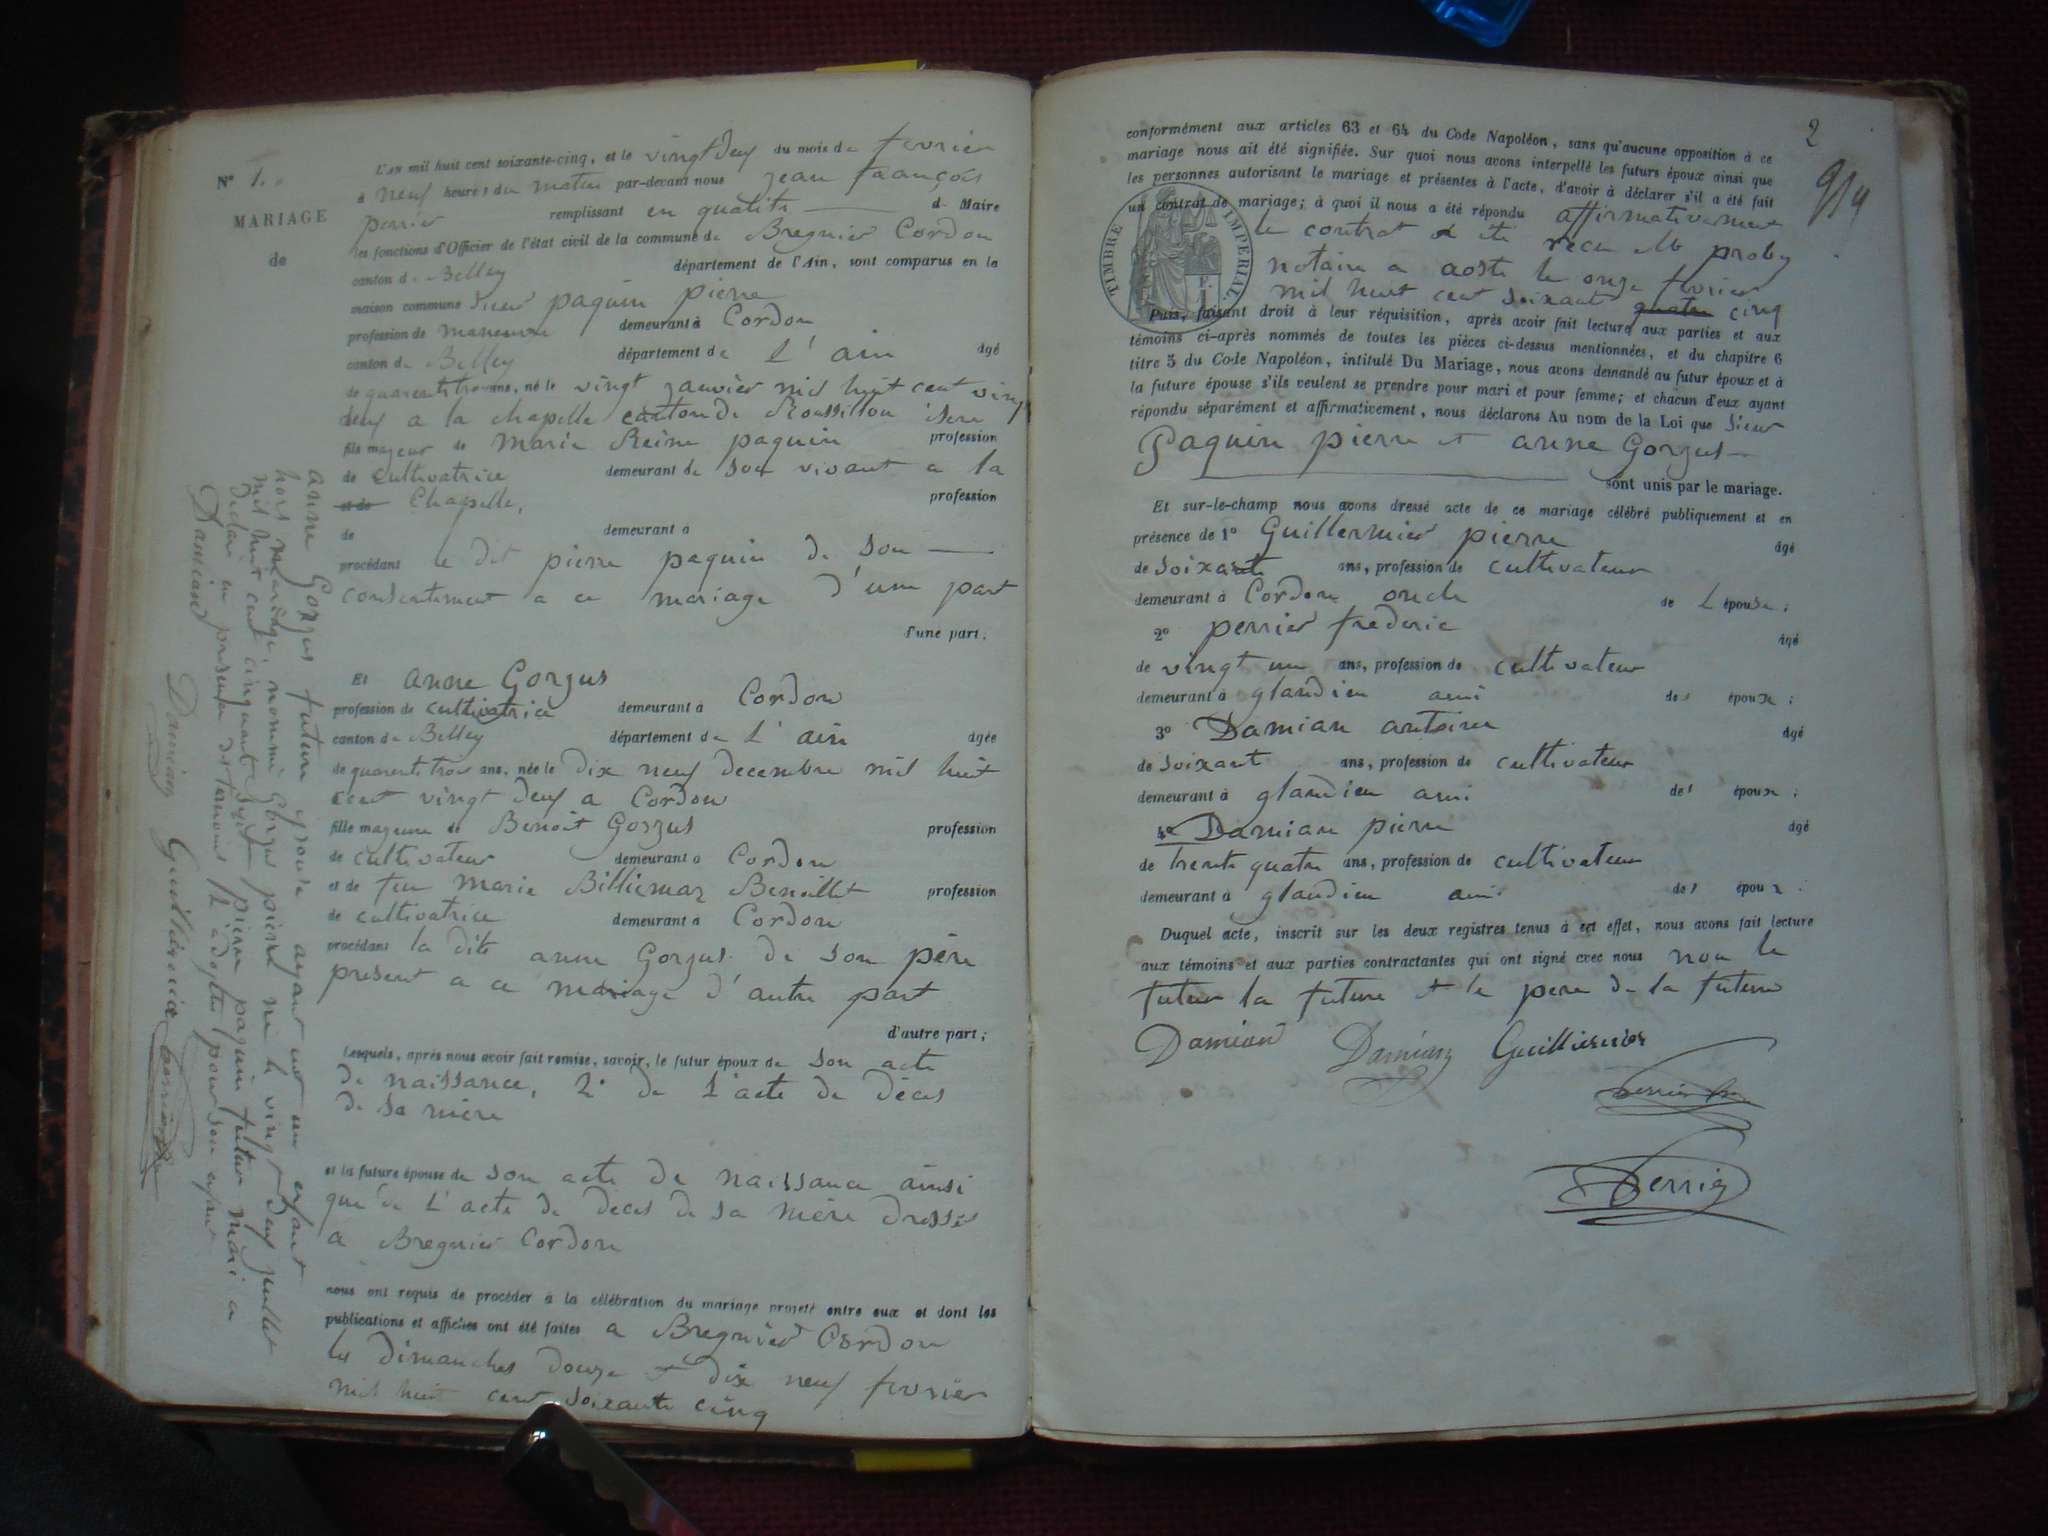 N° 1.
MARIAGE
de
L'an mil huit cent soixante-cinq, et le vingt deux du mois de fevrier
à neuf heures du matin par-devant nous jean françois
perrier remplissant en qualité de Maire
les fonctions d'Officier de l'état civil de la commune de Bregnier Cordon
canton de Belley département de l'Ain, sont comparus en la
maison commune sieur paquin pierre
profession de demeurant à Cordon
canton de Belley département de L'ain âgé
de quarente trois ans, né le vingt janvier mil huit cent vingt
deux a la chapelle canton de Roussillon isere
fils majeur de Marie Reine paquin profession
de cultivatrice demeurant de son vivant a la
et de Chapelle, profession
de demeurant à
procédant le dit pierre paquin de son
consentement a ce mariage d'une part
d'une part;
Et anne Gorgus
profession de cultivatrice demeurant à Cordon
canton de Belley département de L'ain âgée
de quarente trois ans, née le dix neuf decembre mil huit
cent vingt deux a Cordon
fille majeure de Benoit Gorgus profession
de cultivateur demeurant à Cordon
et de feu marie Billiemaz Benoillet profession
de cultivatrice demeurant à Cordon
procédant la dite anne Gorgus de son père
present a ce mariage d'autre part
d'autre part;
Lesquels, après nous avoir fait remise, savoir, le futur époux de son acte
de naissance, 2° de L'acte de déces
de sa mère
et la future épouse de son acte de naissance ainsi
que de L'acte de deces de sa mère dressés
a Bregnier Cordon
nous ont requis de procéder à la célébration du mariage projeté entre eux et dont les
publications et affiches ont été faites a Bregnier Cordon
les dimanches douze et dix neuf fevrier
mil huit cent soixante cinq
anne Gorgus future epouse ayant eut un enfant
hors mariage, nommé Gorgus pierre né le vingt deux juillet
mil huit cent cinquant sept pierre paquin futur mari a
declaré en presence de temoins l'adopter pour son enfant
Damian Damian Guillermier perrier
2
conformément aux articles 63 et 64 du Code Napoléon, sans qu'aucune opposition à ce
mariage nous ait été signifiée. Sur quoi nous avons interpellé les futurs époux ainsi que
les personnes autorisant le mariage et présentes à l'acte, d'avoir à déclarer s'il a été fait
un contrat de mariage; à quoi il nous a été répondu affirmativement
le contrat a été recu Me proby
notaire a aoste le onze fevrier
mil huit cent soixante quatre cinq
TIMBRE IMPERIAL
Puis, faisant droit à leur réquisition, après avoir fait lecture aux parties et aux
témoins ci-après nommés de toutes les pièces ci-dessus mentionnées, et du chapitre 6
titre 5 du Code Napoléon, intitulé Du Mariage, nous avons demandé au futur époux et à
la future épouse s'ils veulent se prendre pour mari et pour femme; et chacun d'eux ayant
répondu séparément et affirmativement, nous déclarons Au nom de la Loi que sieur
Paquin pierre et anne Gorgus
sont unis par le mariage.
Et sur-le-champ nous avons dressé acte de ce mariage célébré publiquement et en
présence de 1° Guillermier pierre âgé
de soixante ans, profession de cultivateur
demeurant à Cordon oncle de L épouse;
2° perrier frederic âgé
de vingt un ans, profession de cultivateur
demeurant à glandieu ami des époux;
3° Damian antoine âgé
de soixante ans, profession de cultivateur
demeurant à glandieu ami des époux;
4° Damian pierre âgé
de trente quatre ans, profession de cultivateur
demeurant à glandieu ami des époux.
Duquel acte, inscrit sur les deux registres tenus à cet effet, nous avons fait lecture
aux témoins et aux parties contractantes qui ont signé avec nous non le
futur la future et le pere de la future
Damian Damian Guilliermier
perrier
Perrier